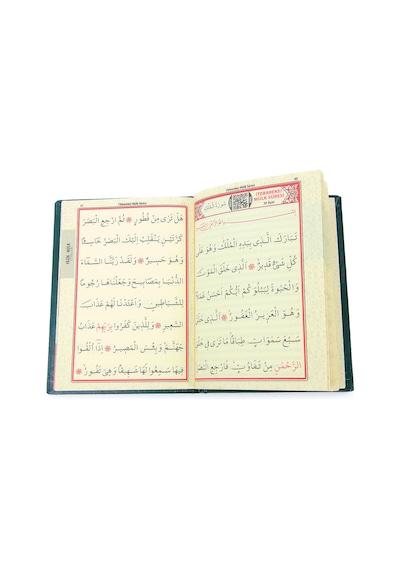 (TEBAREKE)
MÜLK SÛRESİ
30 Âyet
تَبَارَكَ الَّذِي بِيَدِهِ الْمُلْكُ وَهُوَ عَلَى
كُلِّ شَيْءٍ قَدِيرٌ ۙ اَلَّذِي خَلَقَ الْمَوْتَ
وَالْحَيٰوةَ لِيَبْلُوَكُمْ اَيُّكُمْ اَحْسَنُ عَمَلًا
وَهُوَ الْعَزِيزُ الْغَفُورُ ۙ اَلَّذِي خَلَقَ
سَبْعَ سَمٰوَاتٍ طِبَاقًا مَا تَرٰى فِي خَلْقِ
الرَّحْمٰنِ مِنْ تَفَاوُتٍ فَارْجِعِ الْبَصَرَ
هَلْ تَرٰى مِنْ فُطُورٍ ثُمَّ ارْجِعِ الْبَصَرَ
كَرَّتَيْنِ يَنْقَلِبْ اِلَيْكَ الْبَصَرُ خَاسِئًا
وَهُوَ حَسِيرٌ وَلَقَدْ زَيَّنَّا السَّمَاءَ
الدُّنْيَا بِمَصَابِيحَ وَجَعَلْنَاهَا رُجُومًا
لِلشَّيَاطِينِ وَاَعْتَدْنَا لَهُمْ عَذَابَ
السَّعِيرِ وَلِلَّذِينَ كَفَرُوا بِرَبِّهِمْ عَذَابُ
جَهَنَّمَ وَبِئْسَ الْمَصِيرُ اِذَا اُلْقُوا
فِيهَا سَمِعُوا لَهَا شَهِيقًا وَهِيَ تَفُورُ